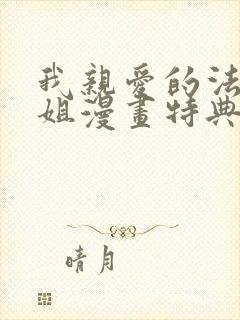 我親愛的法
姐漫畫特典
晴月